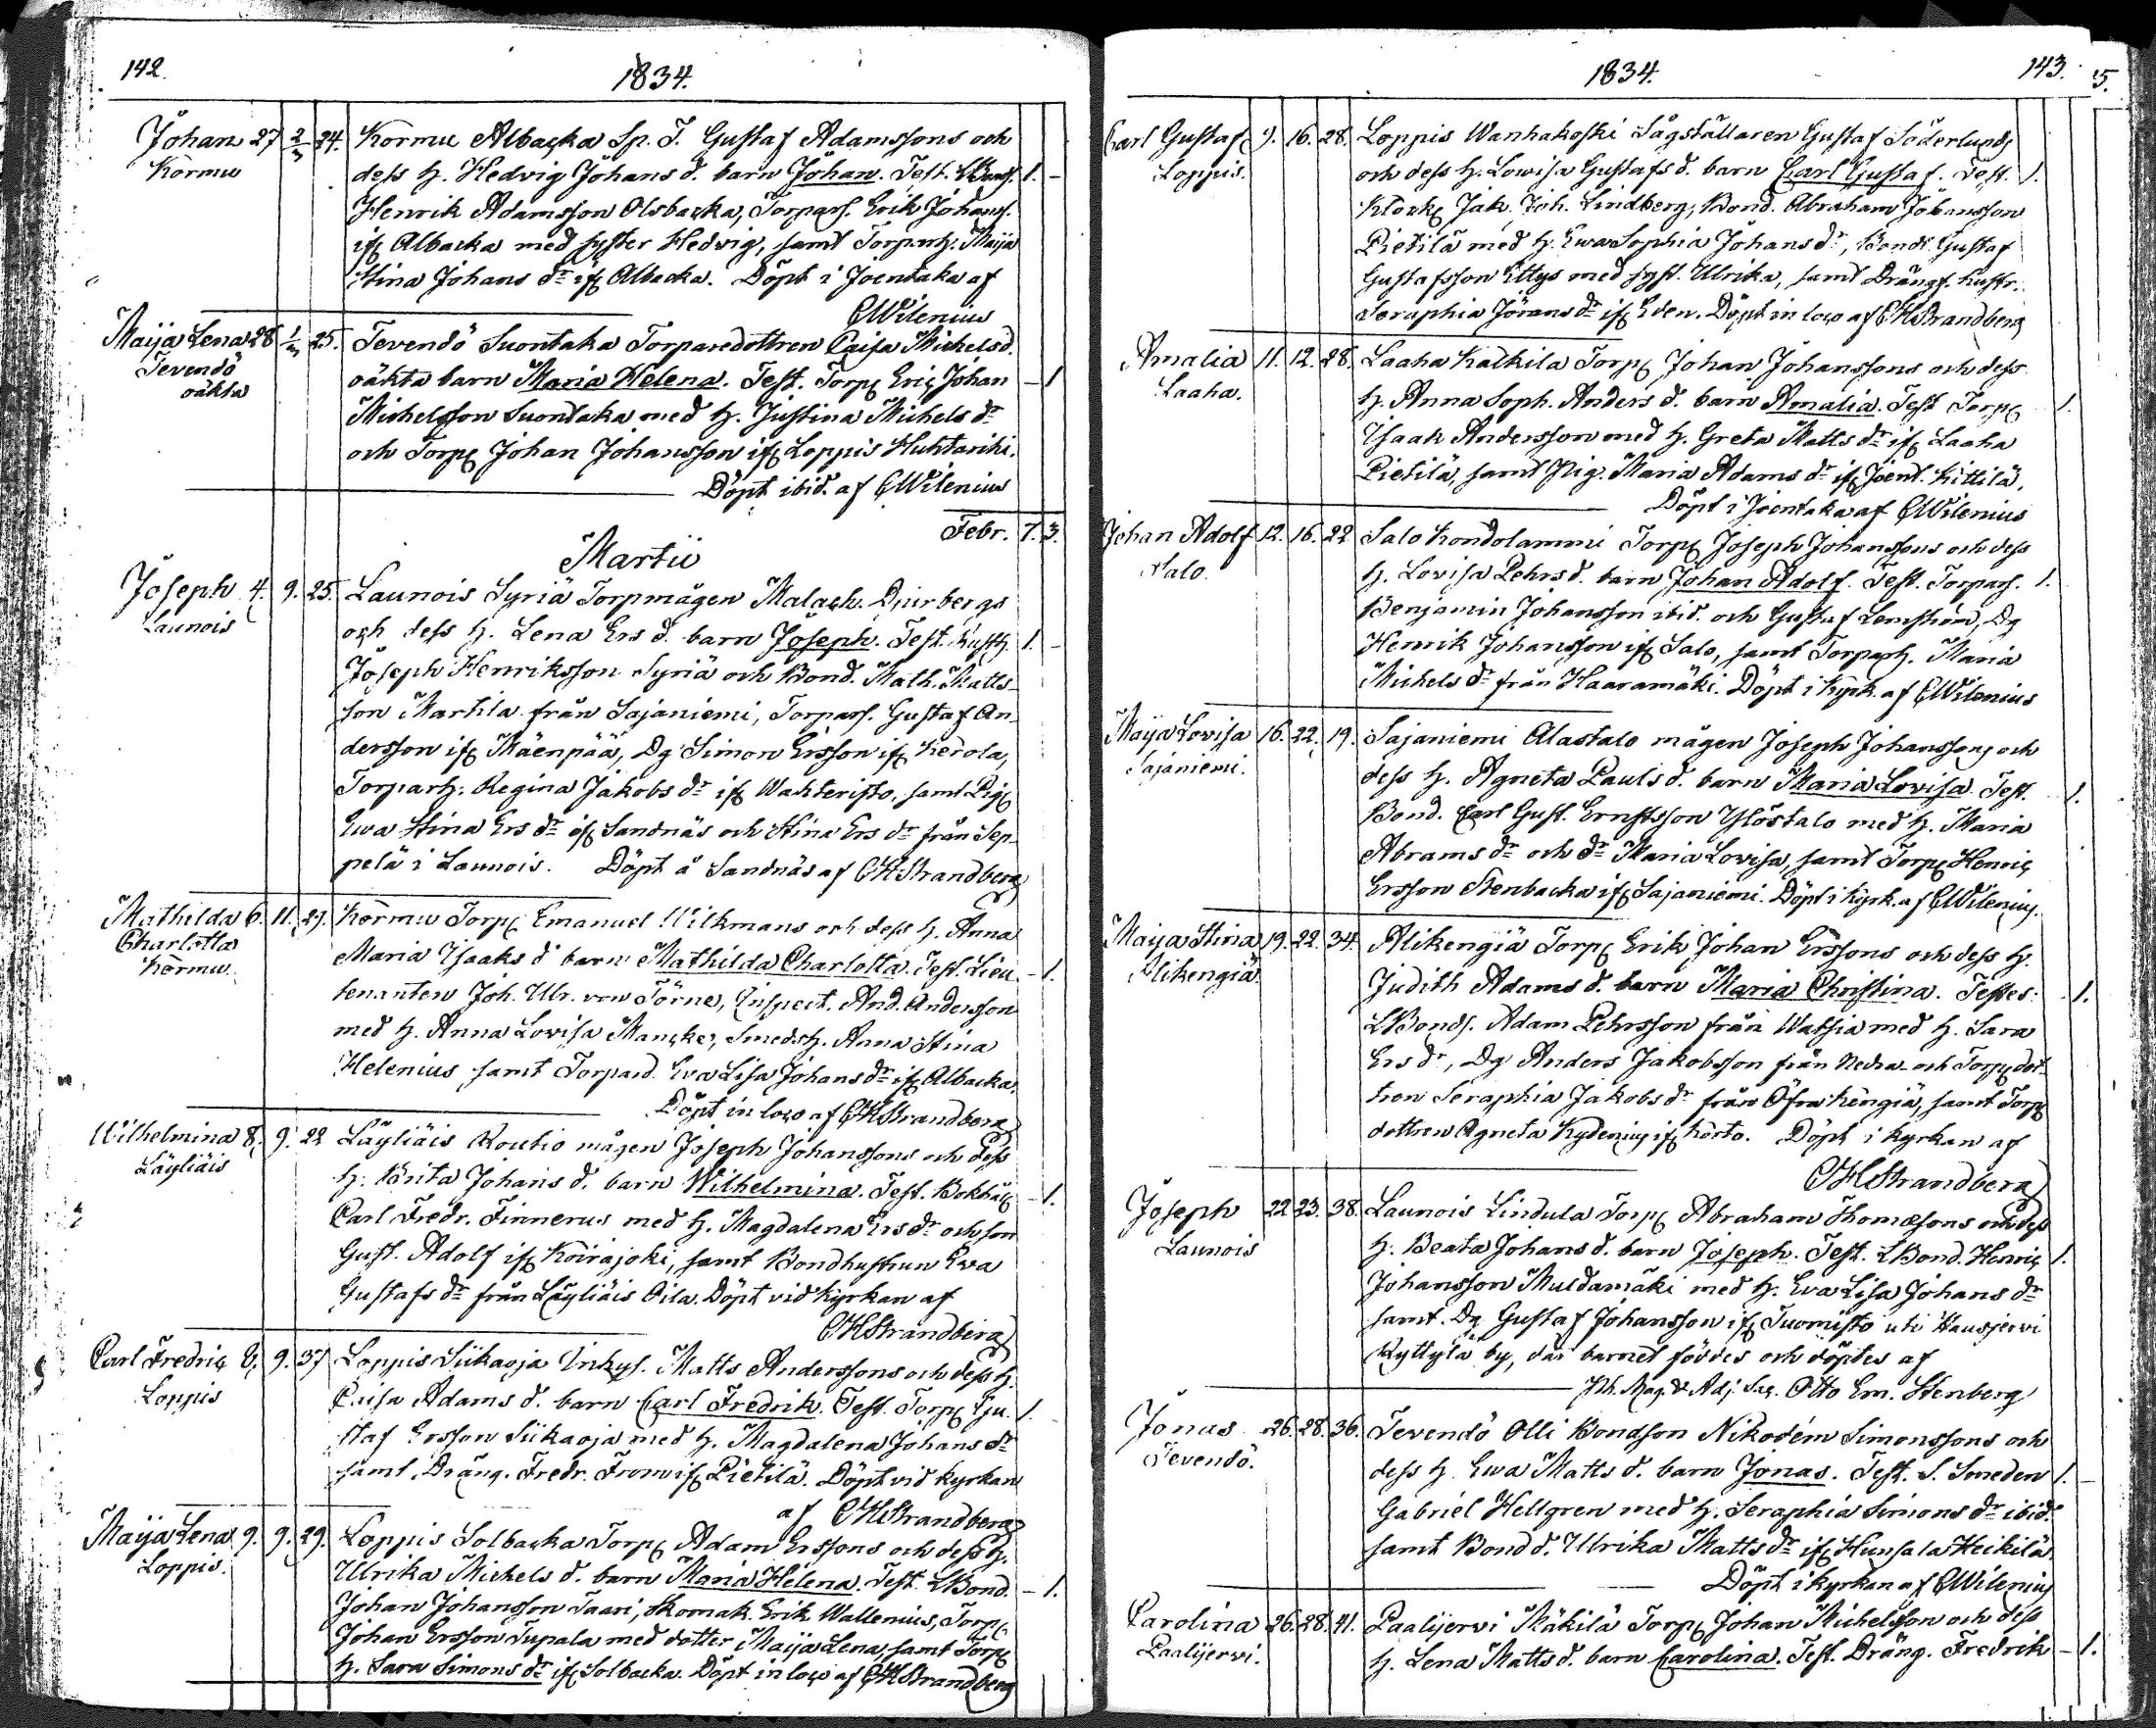 142.
1834.
Johan 27 2/3 24. Kormu Albacka Sp. T. Gustaf Adamssons och
Kormu dess h. Hedvig Johans d. barn Johan. Test. LBond. 1. -
Henrik Adamsson Olsbacka, Torpars. Erik Johans.
if Albacka med syster Hedvig, samt Torparh. Maija
Stina Johans dr if Albacka. Döpt i Joentaka af
CWilenius
Maija Lena 28 1/3 25. Tevendö Suontaka Torparedottren Caisa Michelsd.
Tevendö oäkta barn Maria Helena. Test. Torp Eric Johan - 1
oäkta
Michelsson Suontaka med h. Justina Michels dr
och Torp Johan Johansson if Loppis Huhtariihi.
Döpt ibid. af CWilenius
Febr. 7. 3.
Martii
Joseph 4. 9. 25. Launois Syriä Torpmågen Malach. Djurbergs
Launois och dess h. Lena Ers d. barn Joseph. Test. 1. -
Joseph Henriksson Syriä och Bond. Math. Matts-
son Martila från Sajaniemi, Torpars. Gustaf An-
dersson if Mäenpää, Dg Simon Ersson if Kerola,
Torparh. Regina Jakobs dr if Wahteristo, samt Pig
Ewa Stina Ers dr if Sandnäs och Stina Ers dr från Sep-
pelä i Launois. Döpt å Sandnäs af CHStrandberg
Mathilda 6. 11. 29. Kormu Torp Emanuel Wilkmans och dess h. Anna
Charlotta Maria Isaaks d barn Mathilda Charlotta. Test. Lieu- - 1.
Kormu.
tenanten Joh. Ulr. von Törne, Inspect. And. Andersson
med h. Anna Lovisa Mancke, Smedsh. Anna Stina
Helenius samt Torpard. Eva Lisa Johans dr if Albacka.
Döpt in loco af CHStrandberg
Wilhelmina 8. 9. 22 Läyliäis Routio mågen Joseph Johanssons och dess
Läyliäis h. Brita Johans d. barn Wilhelmina. Test. Bokhåll - 1.
Carl Fredr. Finnerus med h. Magdalena Ers dr och son
Gust. Adolf if Koirajoki, samt Bondhustrun Ewa
Gustafs dr från Läyliäis Oila. Döpt vid Kyrkan af
CHStrandberg
Carl Fredric 8. 9. 37 Loppis Siikaoja Inhys. Matts Anderssons och dess h.
Loppis Caisa Adams d. barn Carl Fredrik. Test. Torp Gu- 1.
staf Ersson Siikaoja med h. Magdalena Johans dr
samt Dräng. Fredr. From if Pietilä. Döpt vid kyrkan
af CHStrandberg
Maija Lena 9. 9. 29. Loppis Solbacka Torp Adam Erssons och dess h.
Loppis. Ulrika Michels d. barn Maria Helena. Test. LBond. - 1.
Johan Johansson Saari, skomak. Erik Wallenius, Torp
Johan Ersson Supala med dotter Maija Lena, samt Torp
h. Sara Simons dr if Solbacka. Döpt in loco af CHStrandberg
1834.
143.
5.
Carl Gustaf 9. 16. 28. Loppis Wanhakoski Sågställaren Gustaf Söderlunds
Loppis. och dess h. Lowisa Gustafs d. barn Carl Gustaf. Test. 1.
Klock Jak. Joh. Lindberg, Bond. Abraham Johansson
Pietilä med h. Ewa Sophia Johans dr, Bonds. Gustaf
Gustafsson Ettys med syst. Ulrika, samt Drängs. hustr.
Seraphia Jörans dr if Eden. Döpt in loco af CHStrandberg
Amalia 11. 12. 28. Laaha Kälkilä Torp Johan Johanssons och dess
Laaha. h. Anna Soph. Anders d. barn Amalia. Test Torp 1.
Isaak Andersson med h. Greta Matts dr if Laaha
Pietilä, samt Pig. Maria Adams dr if Joent. Kittilä.
Döpt i Joentaka af CWilenius
Johan Adolf 12. 16. 22 Salo Kondolammi Torp Joseph Johanssons och dess
Salo. h. Lovisa Pehrs d. barn Johan Adolf. Test. Torpars. 1.
Benjamin Johansson ibid. och Gustaf Lemström, Dg
Henrik Johansson if Salo, samt Torparh. Maria
Michels dr från Haaramäki. Döpt i Kyrk. af CWilenius
Maija Lovisa 16. 22. 19. Sajaniemi Alastalo mågen Joseph Johanssons och
Sajaniemi. dess h. Agneta Pauls d. barn Maria Lovisa. Test. 1.
Bond. Carl Gust. Ernstsson Ylöstalo med h. Maria
Abrams dr och dr Maria Lovisa, samt Torp Henric
Ersson Stenbacka if Sajaniemi. Döpt i Kyrk. af CWilenius.
Maija Stina 19. 22. 34. Alikengiä Torp Erik Johan Erssons och dess h.
Alikengiä. Judith Adams d. barn Maria Christina. Testes: 1.
LBonds. Adam Pehrsson från Watsia med h. Sara
Ers dr, Dg Anders Jakobsson från Nedra- och Torpdot-
tren Seraphia Jakobs dr från Öfra kengiä, samt Torp
dottren Agneta Kydenius if Korto. Döpt i kyrkan af
CHStrandberg
Joseph 22 23. 38. Launois Lindula Torp Abraham Thomæsons och dess
Launois h. Beata Johans d. barn Joseph. Test. LBond. Henric 1.
Johansson Muldamäki med h. Eva Lisa Johans dr
samt Dg Gustaf Johansson if Tuomisto uti Hausjervi
Ryttylä by, där barnet föddes och döptes af
Ph. Mag. & Adj. Sac. Otto Em. Stenberg
Jonas 26. 28. 36. Tevendö Olli Bondson Nikodém Simonssons och
Tevendö. dess h. Ewa Matts d. barn Jonas. Test. S. Smeden 1. -
Gabriel Hellgren med h. Seraphia Simons dr ibid.
samt Bond d. Ulrika Matts dr if Hunsala Heikilä.
Döpt i kyrkan af CWilenius
Carolina 26. 28. 41. Paalijervi Mäkilä Torp Johan Michelsson och dess
Paalijervi. h. Lena Matts d. barn Carolina. Test. Dräng. Fredrik - 1.